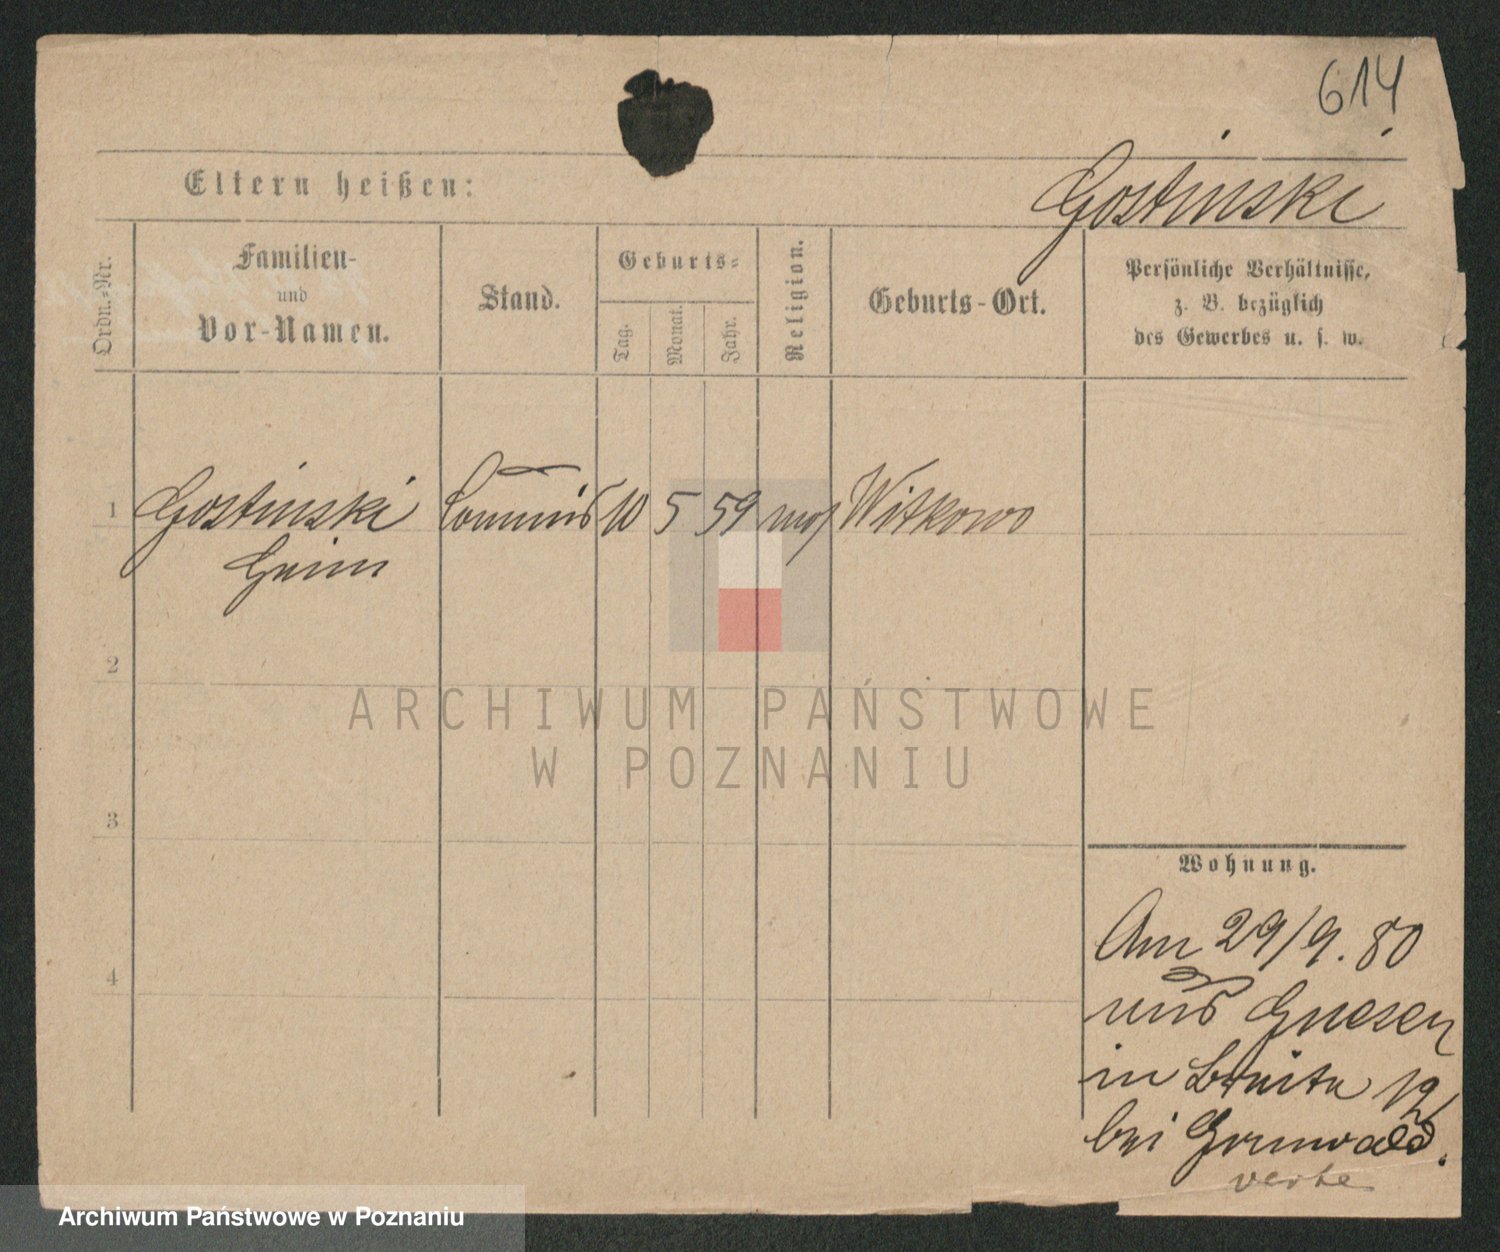 614
Eltern heißen:
Gostinski
Ordn.-Nr.
Familien-
und
Vor-Namen.
Stand.
Geburts-
Tag.
Monat.
Jahr.
Religion.
Geburts-Ort.
Persönliche Verhältnisse,
z. B. bezüglich
des Gewerbes u. s. w.
1 Gostinski Commis 10 5 59 mos Witkowo
Heim
2
3
4
ARCHIWUM PAŃSTWOWE
W POZNANIU
Wohnung.
Am 29/9. 80
aus Gnesen
in Breite 19
bei Grunwald.
Archiwum Państwowe w Poznaniu